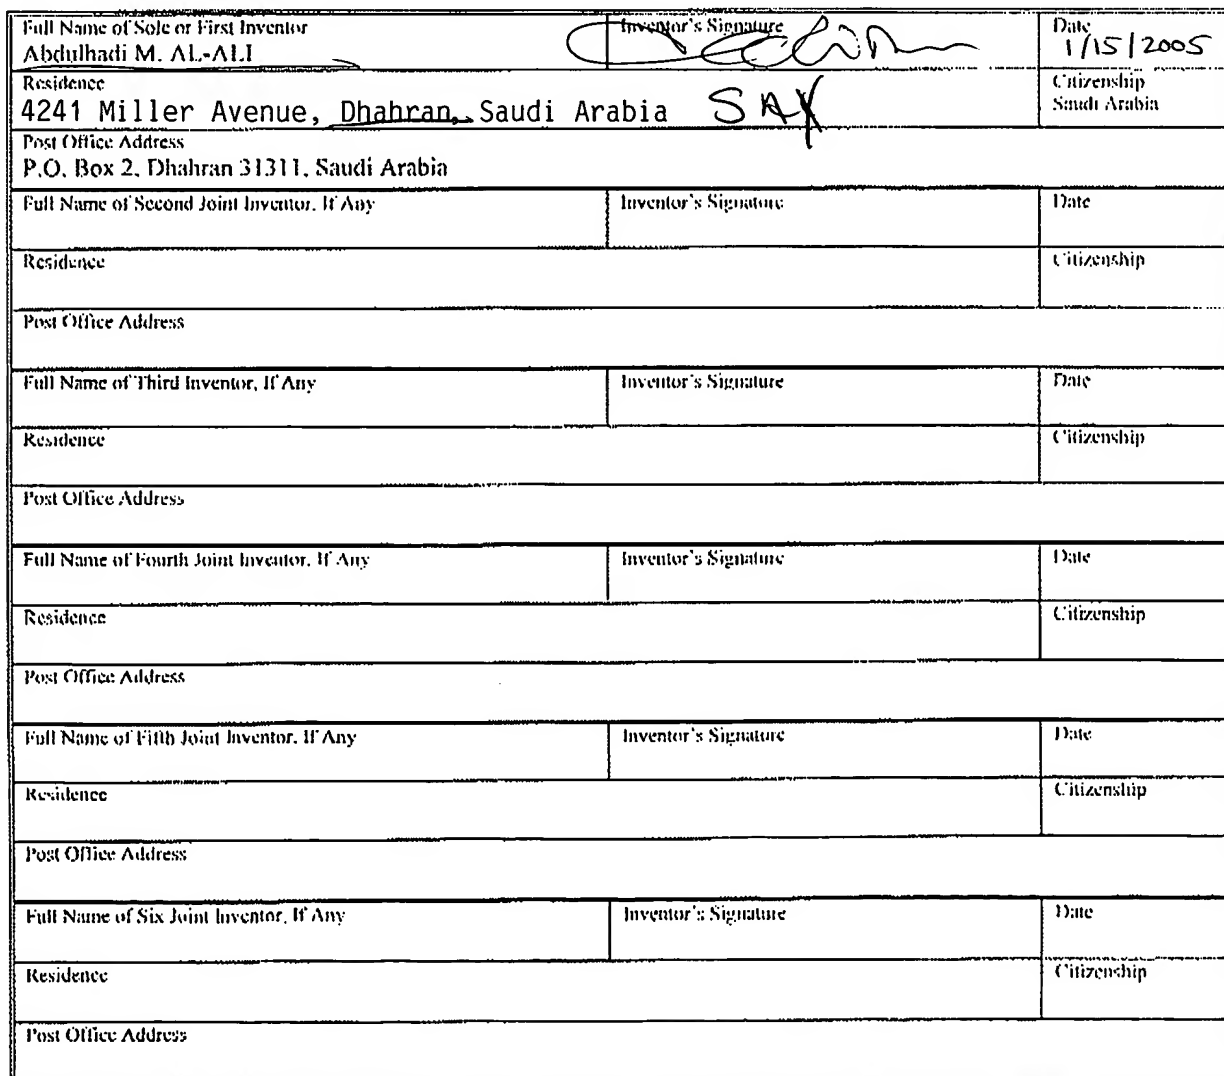 Full Name of Sole or First Inventor Inventor's Signature Date
Abdulhadi M. AL-ALI 1/15/2005
Residence Citizenship
4241 Miller Avenue, Dhahran, Saudi Arabia SAX Saudi Arabia
Post Office Address
P.O. Box 2, Dhahran 31311, Saudi Arabia
Full Name of Second Joint Inventor, If Any Inventor's Signature Date
Residence Citizenship
Post Office Address
Full Name of Third Inventor, If Any Inventor's Signature Date
Residence Citizenship
Post Office Address
Full Name of Fourth Joint Inventor, If Any Inventor's Signature Date
Residence Citizenship
Post Office Address
Full Name of Fifth Joint Inventor, If Any Inventor's Signature Date
Residence Citizenship
Post Office Address
Full Name of Six Joint Inventor, If Any Inventor's Signature Date
Residence Citizenship
Post Office Address